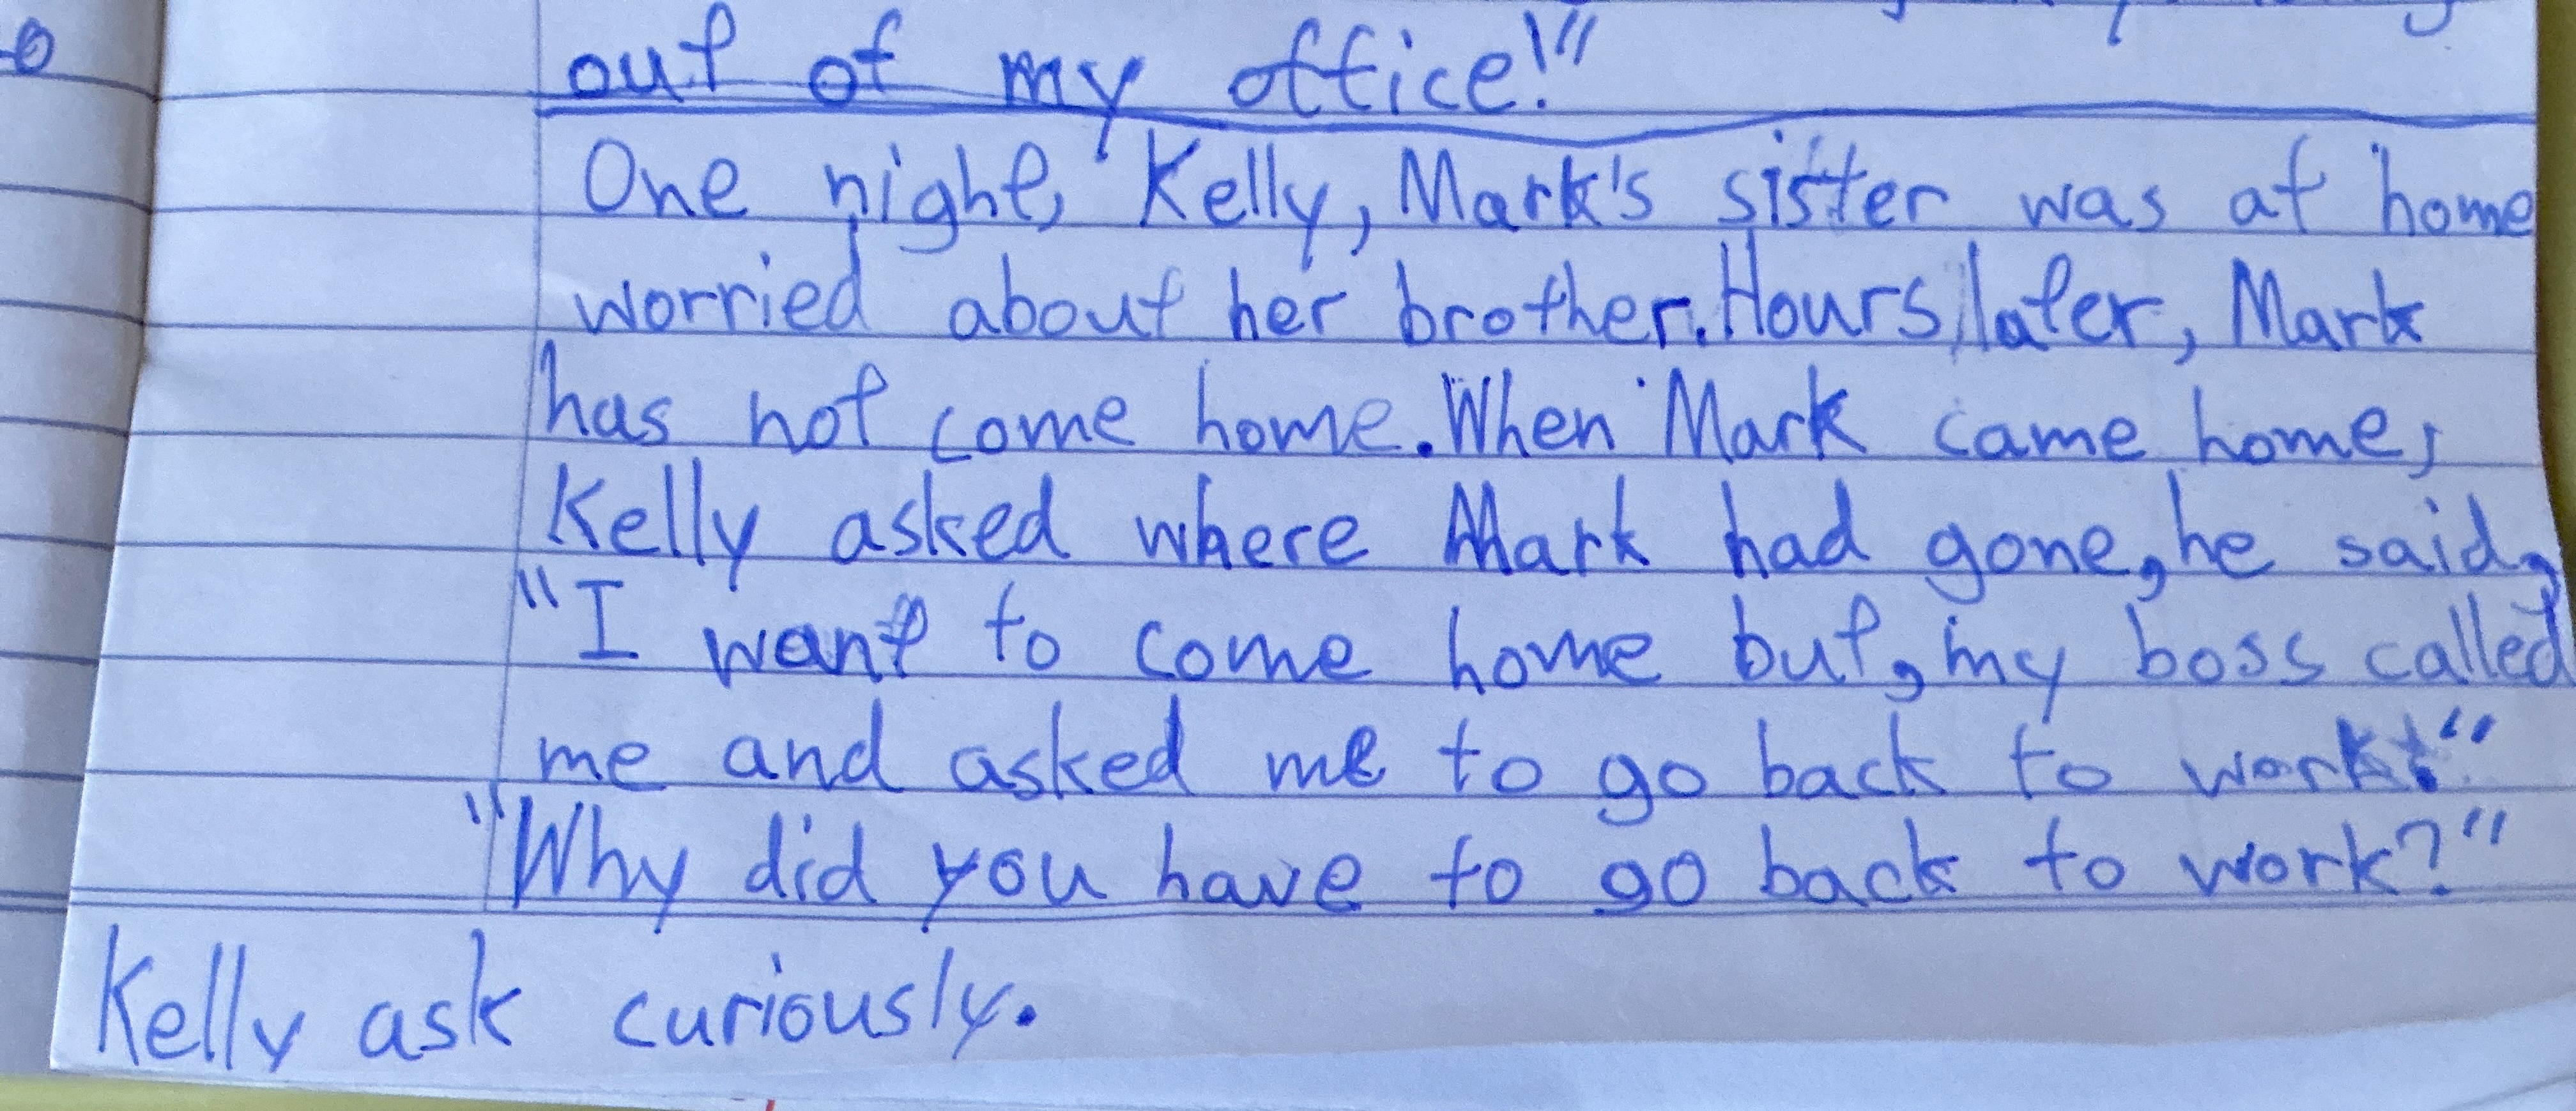 out of my office!"
One night, Kelly, Mark's sister was at home
worried about her brother. Hours later, Mark
has not come home. When Mark came home,
Kelly asked where Mark had gone, he said,
"I want to come home but, my boss called
me and asked me to go back to work."
"Why did you have to go back to work?"
Kelly ask curiously.